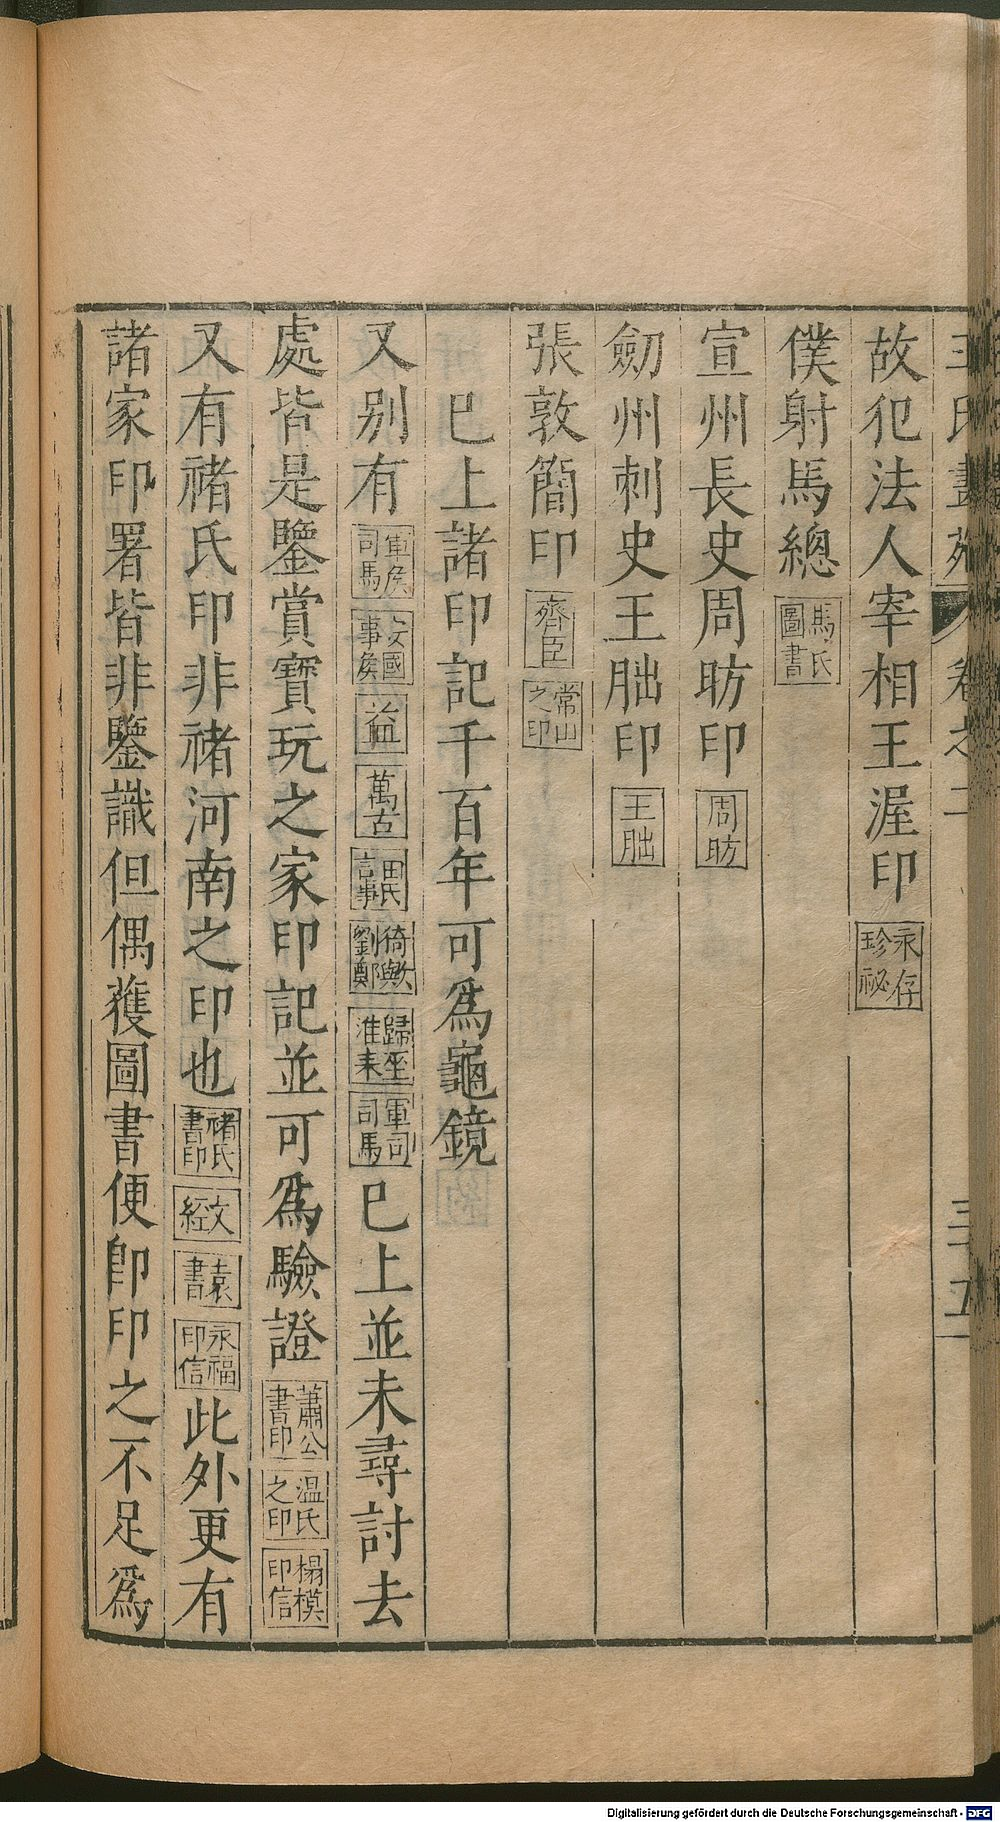 王氏畫苑 卷之二 三十五
故犯法人宰相王渥印 永存珍祕
僕射馬總 馬氏圖書
宣州長史周昉印 周昉
劒州刺史王朏印 王朏
張敦簡印 齊臣 常山之印
已上諸印記千百年可爲龜鏡
又别有 軍侯司馬 安國事侯 益 萬古 田氏言事 劉鄭 歸至淮未 軍司司馬 已上並未尋討去
處皆是鑒賞寶玩之家印記並可爲驗證 蕭公書印 温氏之印 榻模印信
又有褚氏印非褚河南之印也 褚氏書印 文經 袁書 永福印信 此外更有
諸家印署皆非鑒識但偶獲圖書便卽印之不足爲
Digitalisierung gefördert durch die Deutsche Forschungsgemeinschaft - DFG